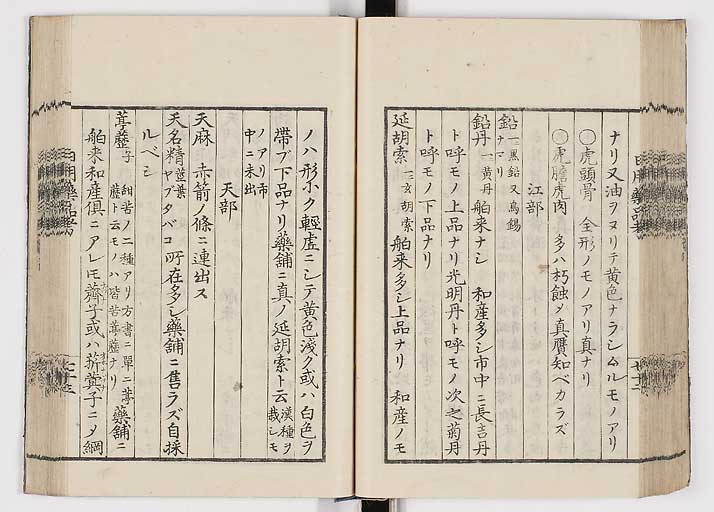 ナリ又油ヲヌリテ黄色ナラシムルモノアリ
〇虎頭骨 全形ノモノアリ真ナリ
〇虎膽虎肉 多ハ朽蝕メ真贋知ベカラズ
江部
鉛 一黒鉛又烏錫
ナマリ
鉛丹 一黄丹 舶来ナシ 和産多シ市中ニ長吉丹
ト呼モノ上品ナリ光明丹ト呼モノ次之菊丹
ト呼モノ下品ナリ
延胡索 一玄胡索 舶来多シ上品ナリ 和産ノモ
ノハ形小ク輕虚ニシテ黄色淺ク或ハ白色ヲ
帶ブ下品ナリ藥舗ニ真ノ延胡索ト云 漢種ヲ
栽シモ
ノアリ市
中ニ未出
天部
天麻 赤箭ノ條ニ連出ス
天名精 葉 ヤブタバコ 所在多シ藥舗ニ售ラズ自採
ルベシ
葶藶子 甜苦ノ二種アリ方書ニ單ニ葶
藶ト云モノハ皆苦葶藶ナリ 藥舗ニ
舶来和産倶ニアレ𪜈薺子或ハ菥蓂子ニメ綱
日用藥品考